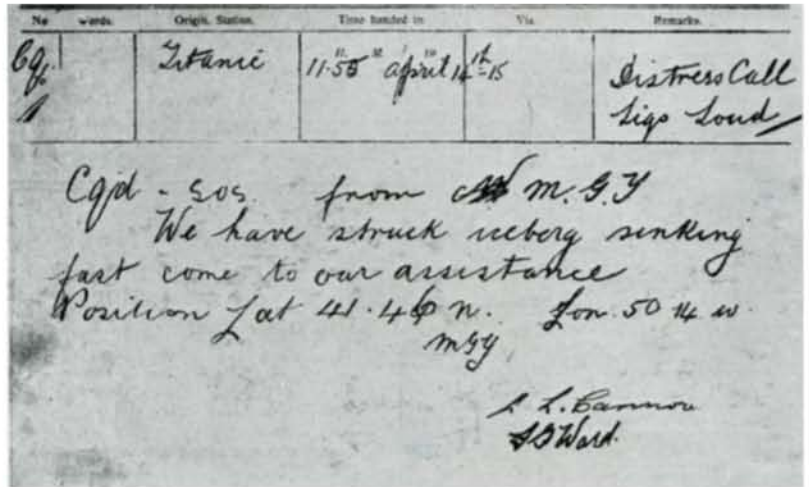 No words. Origin. Station. Time handed in Via Remarks.
Cqd Titanic 11.55 April 14th-15 Distress Call
1 Sigs Loud
Cqd - SOS. from M.G.Y
We have struck iceberg sinking
fast come to our assistance
Position Lat 41.46 n. Lon. 50 14 w.
MGY
L.
SDWard.